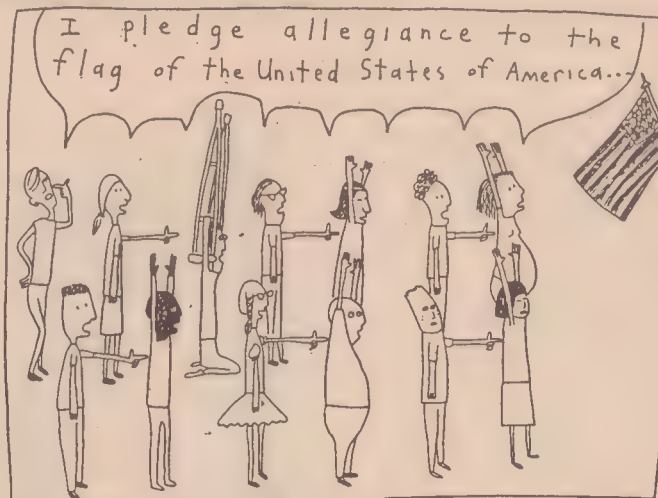 I pledge allegiance to the
flag of the United States of America...